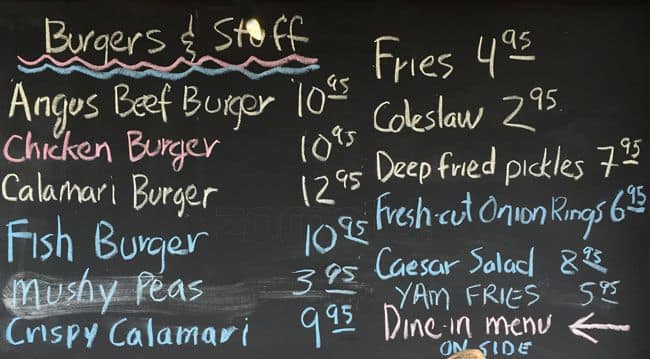 Burgers & Stuff
Angus Beef Burger 10.95
Chicken Burger 10.95
Calamari Burger 12.95
Fish Burger 10.95
Mushy Peas 3.95
Crispy Calamari 9.95
Fries 4.95
Coleslaw 2.95
Deep fried pickles 7.95
Fresh-cut Onion Rings 6.95
Caesar Salad 8.95
YAM FRIES 5.95
Dine-in menu ←
ON SIDE